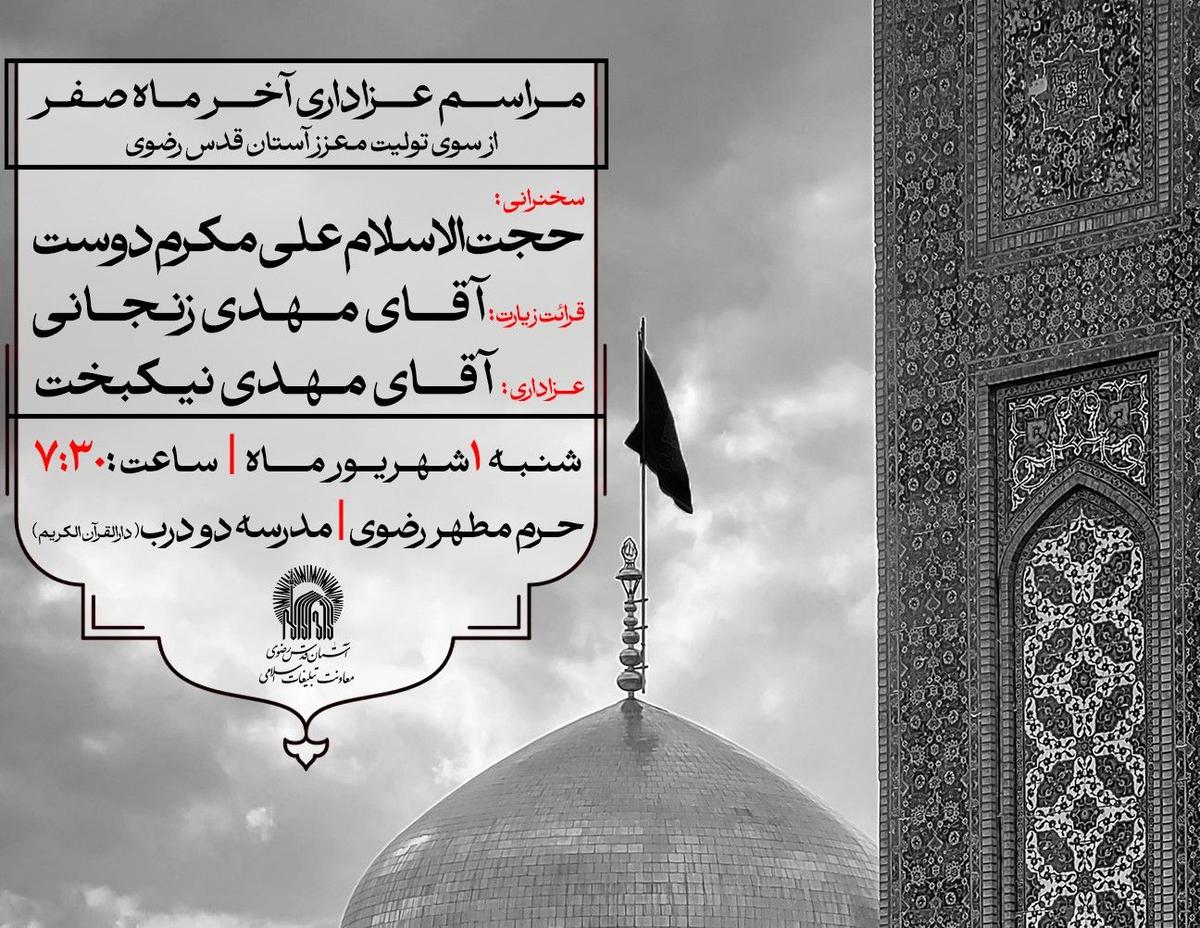 مراسم عزاداری آخر ماه صفر
از سوی تولیت معزز آستان قدس رضوی
سخنرانی:
حجت‌الاسلام علی مکرم دوست
قرائت زیارت: آقای مهدی زنجانی
عزاداری: آقای مهدی نیکبخت
شنبه ۱ شهریور ماه | ساعت: ۷:۳۰
حرم مطهر رضوی | مدرسه دو درب (دارالقرآن الکریم)
آستان قدس رضوی
معاونت تبلیغات اسلامی